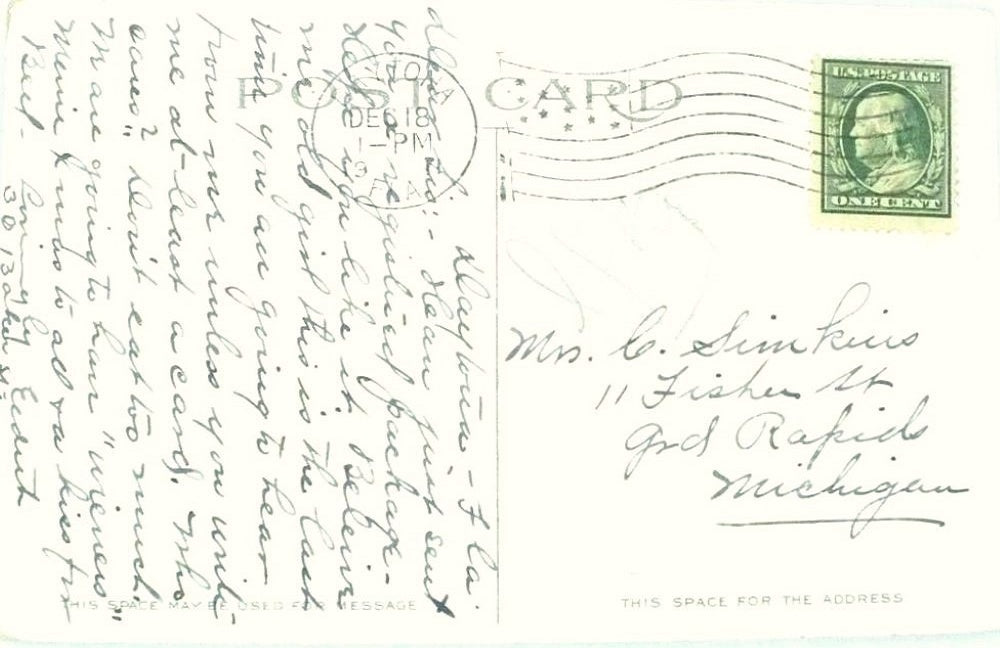 POST CARD
DEC 18
1-PM
FLA
U.S. POSTAGE
ONE CENT
Daytona - Fla.
Dear just sent
you a registered package -
Hope you like it. Believe
me old girl this is the last
time you are going to hear
from me unless you write
me at least a card. Who
cares? Don't eat too much.
Ma are going to have "wieners"
Mine sends to all & a kiss for
30 Baker St.
Mrs. C. Simkins
11 Fisher St
Grd Rapids
Michigan
THIS SPACE MAY BE USED FOR MESSAGE
THIS SPACE FOR THE ADDRESS